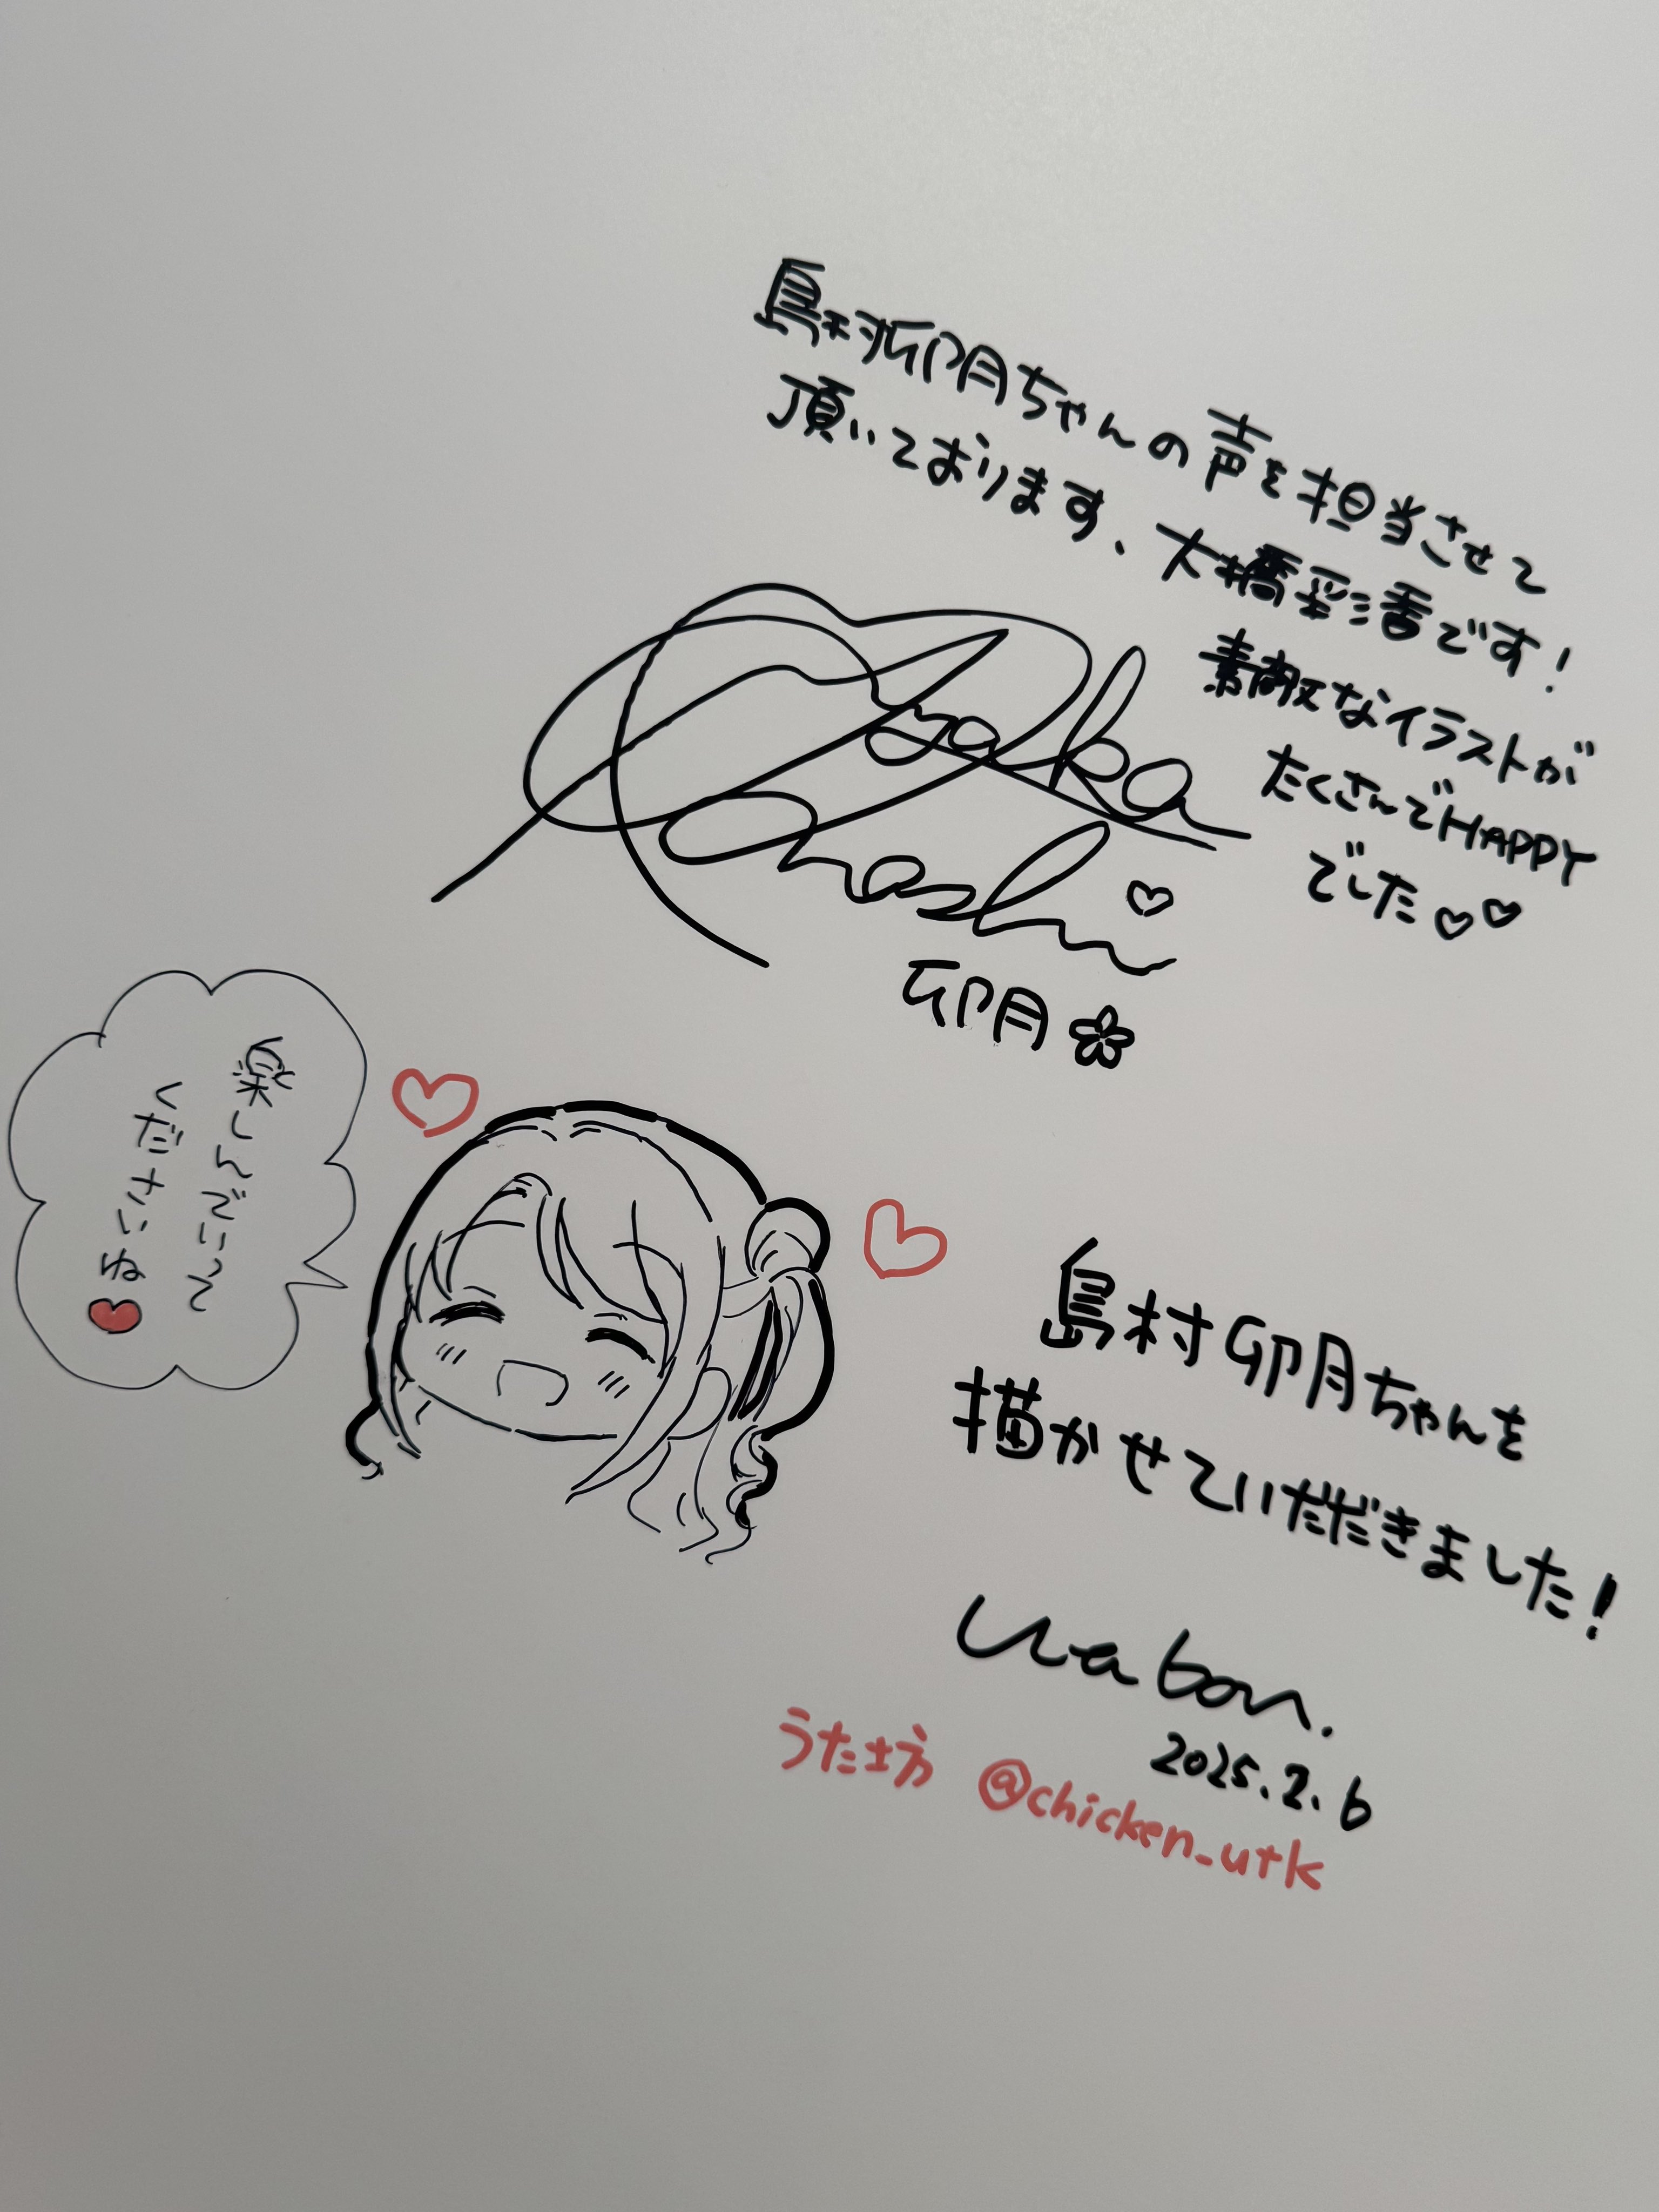 島村卯月ちゃんの声を担当させて
頂いております、大橋彩香です!
素敵なイラストが
たくさんでHAPPY
でした♡♡
Ayaka Ohashi♡
卯月
楽しんでいって
くださいね♥
島村卯月ちゃんを
描かせていただきました!
utabon.
2025.2.6
うた坊 @chicken_utk